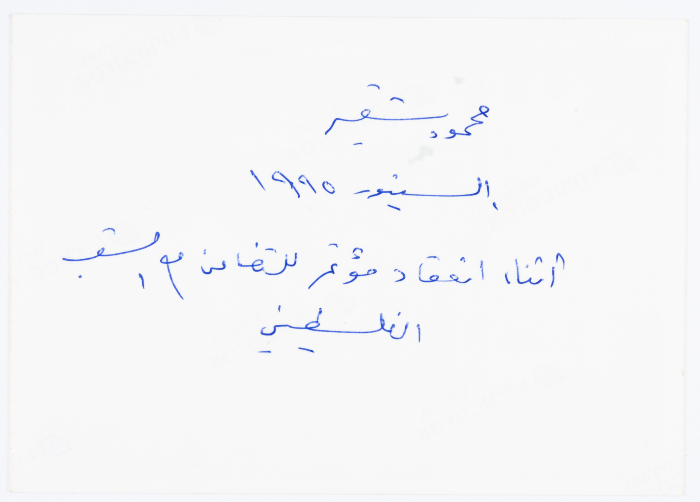 محمود شقير
إلسينور ١٩٩٥
أثناء انعقاد مؤتمر للتضامن مع الشعب
الفلسطيني